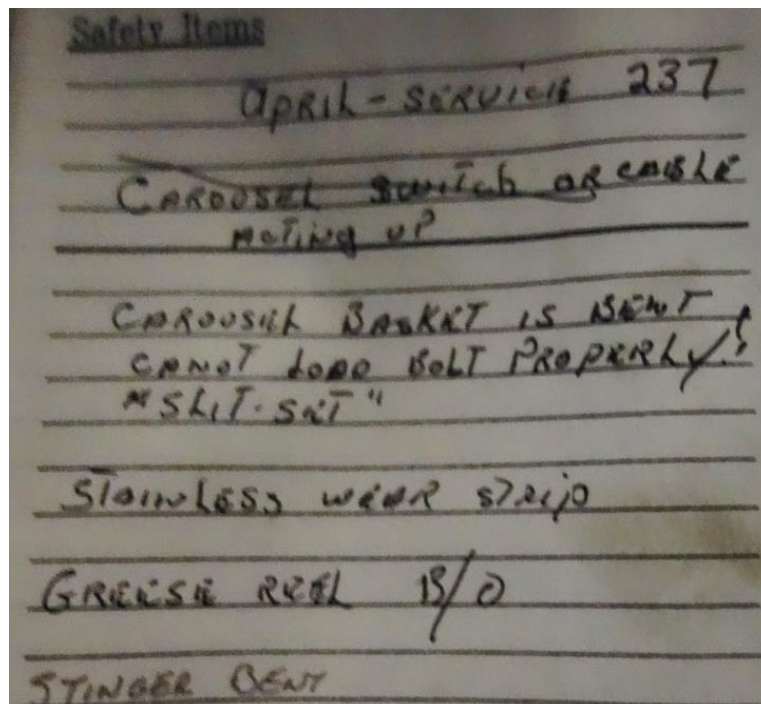 Safety Items
APRIL - SERVICE 237
CAROUSEL SWITCH OR CABLE
ACTING UP
CAROUSEL BASKET IS BENT,
CANOT LOAD BOLT PROPERLY!
"SLIT-SET"
STAINLESS WEAR STRIP
GREESE REEL B/O
STINGER BENT